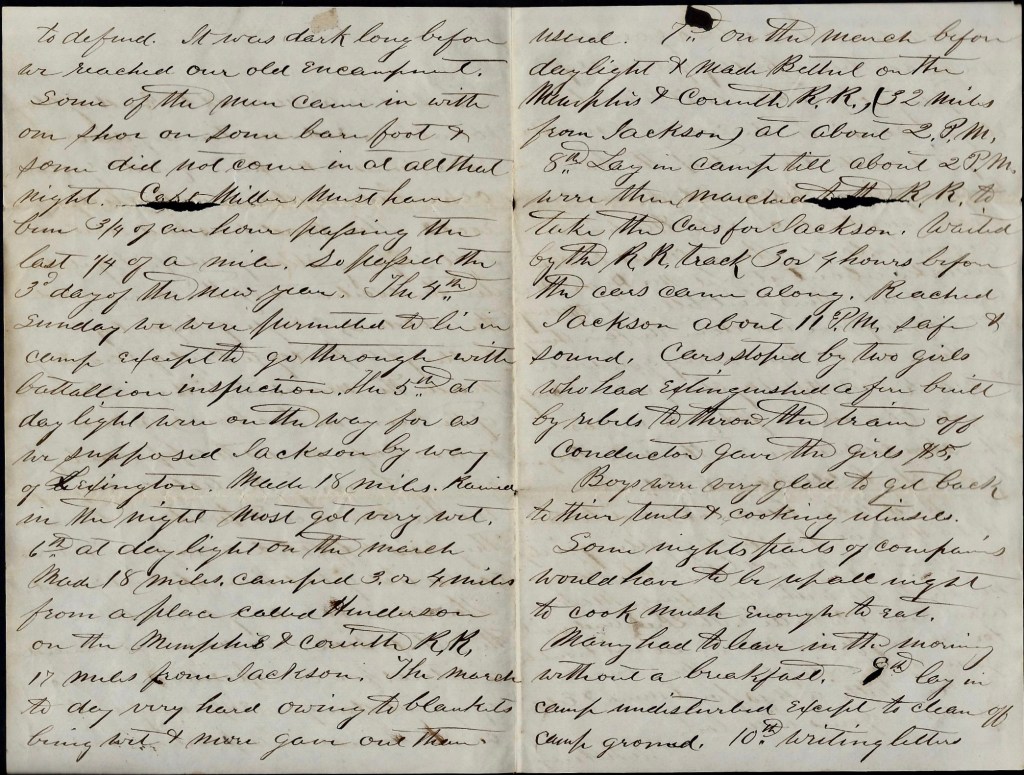 to defend. It was dark long before
we reached our old encampment.
Some of the men came in with
one shoe on some bare foot &
some did not come in at all that
night. Miller must have
been 3/4 of an hour passing the
last 1/4 of a mile. So passed the
3d day of the new year. The 4th
Sunday we were permitted to lie in
camp except to go through with
battallion inspection. The 5th at
daylight were on the way for as
we supposed Jackson by way
of Lexington. Made 18 miles. Rained
in the night most got very wet.
6th at day light on the march
Made 18 miles, camped 3 or 4 miles
from a place called Henderson
on the Memphis & Corinth R.R.
17 miles from Jackson. The march
to day very hard owing to blankets
being wet & more gave out than
usual. 7th on the march before
daylight & made Bethel on the
Memphis & Corinth R.R., (32 miles
from Jackson) at about 2 P.M.
8th Lay in camp till about 2 P.M.
were then marched R.R. to
take the cars for Jackson. Waited
by the R.R. track 3 or 4 hours before
the cars came along. Reached
Jackson about 11 P.M. safe &
sound. Cars stoped by two girls
who had extinguished a fire built
by rebels to throw the train off
Conductor gave the girls $5,
Boys were very glad to get back
to their tents & cooking utensels.
Some nights parts of companies
would have to be up all night
to cook mush enough to eat.
Many had to leave in the morning
without a breakfast. 9th lay in
camp undisturbed except to clean off
camp ground. 10th writing letters